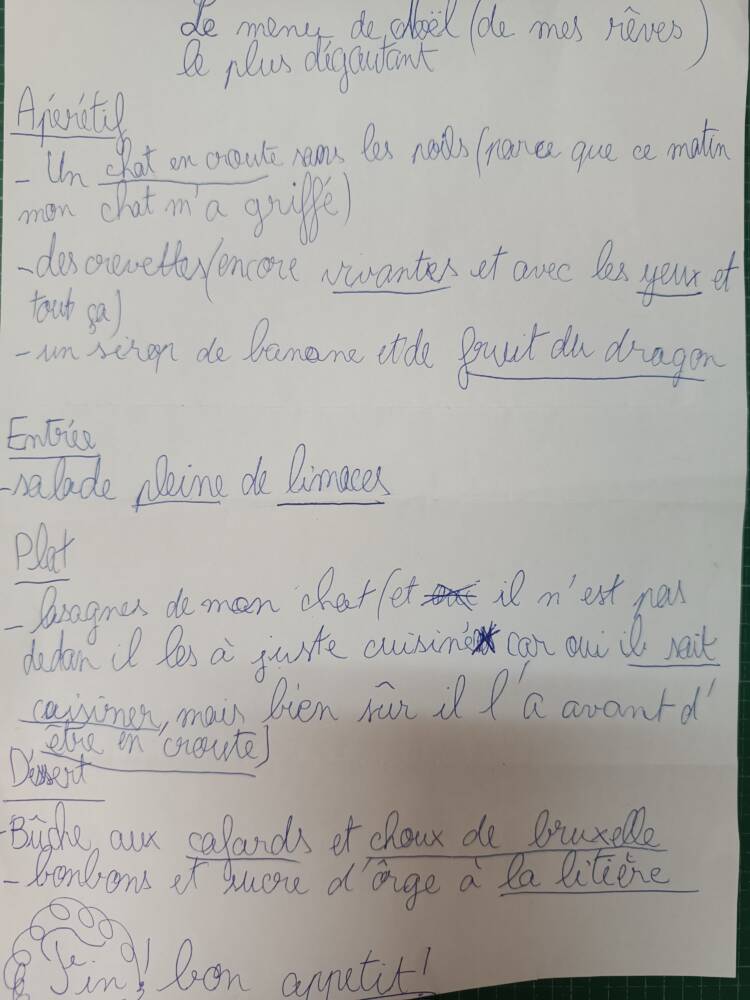 Le menu de Noël (de mes rêves)
le plus dégoutant
Apérétif
- Un chat en croute sans les poils (parce que ce matin
mon chat m'a griffé)
- des crevettes (encore vivantes et avec les yeux et
tout ça)
- un sirop de banane et de fruit du dragon
Entrée
- salade pleine de limaces
Plat
- lasagnes de mon chat (et il n'est pas
dedan il les à juste cuisiné car oui il sait
cuisiner, mais bien sûr il l'a avant d'
être en croute)
Dessert
- Bûche aux cafards et choux de bruxelle
- bonbons et sucre d'ôrge à la litière
Fin! bon appetit!